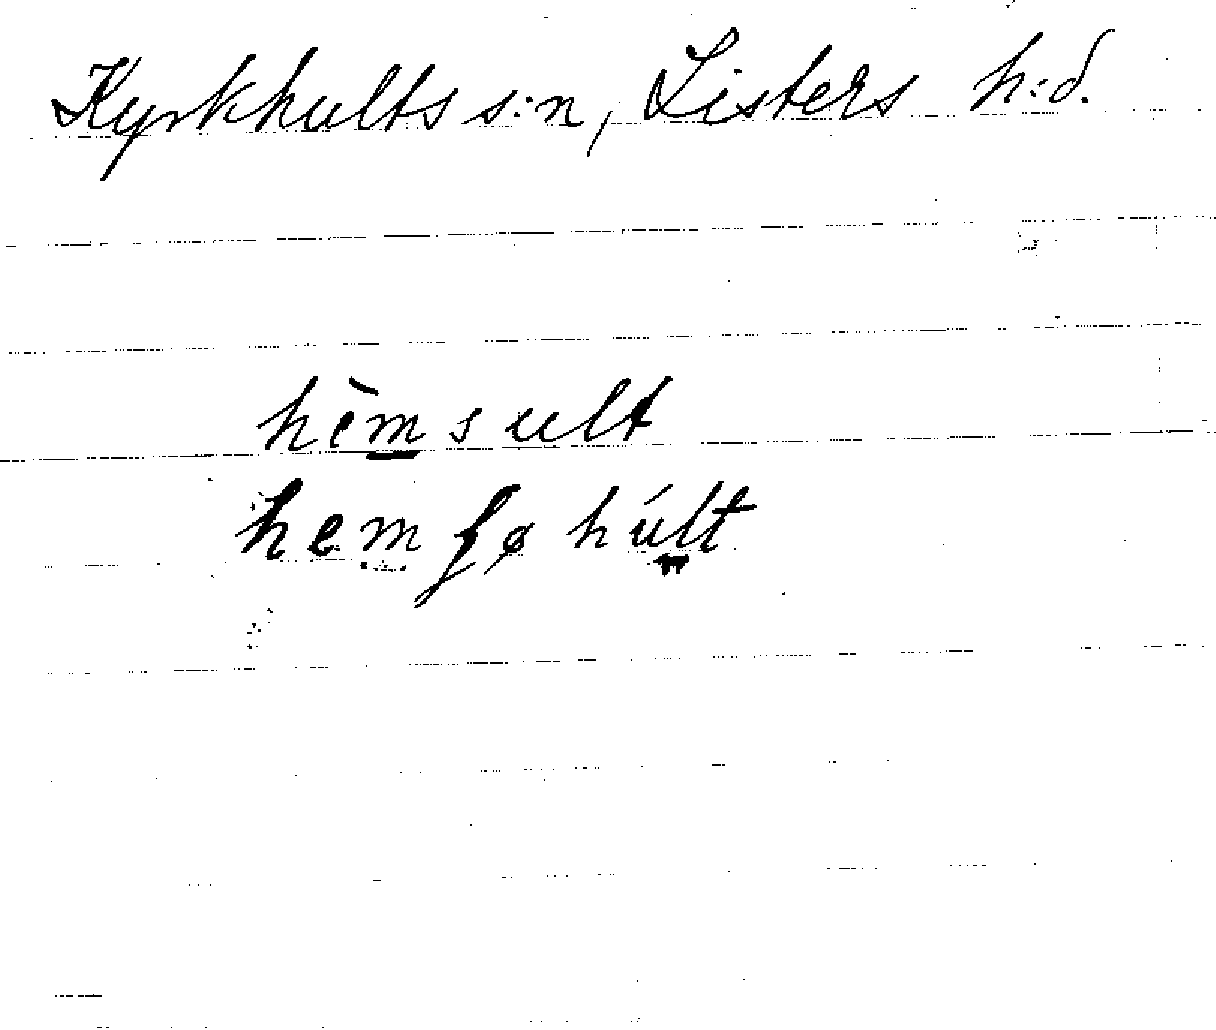 Kyrkhults s:n, Listers h:d.
hèmsult
hem fø húlt